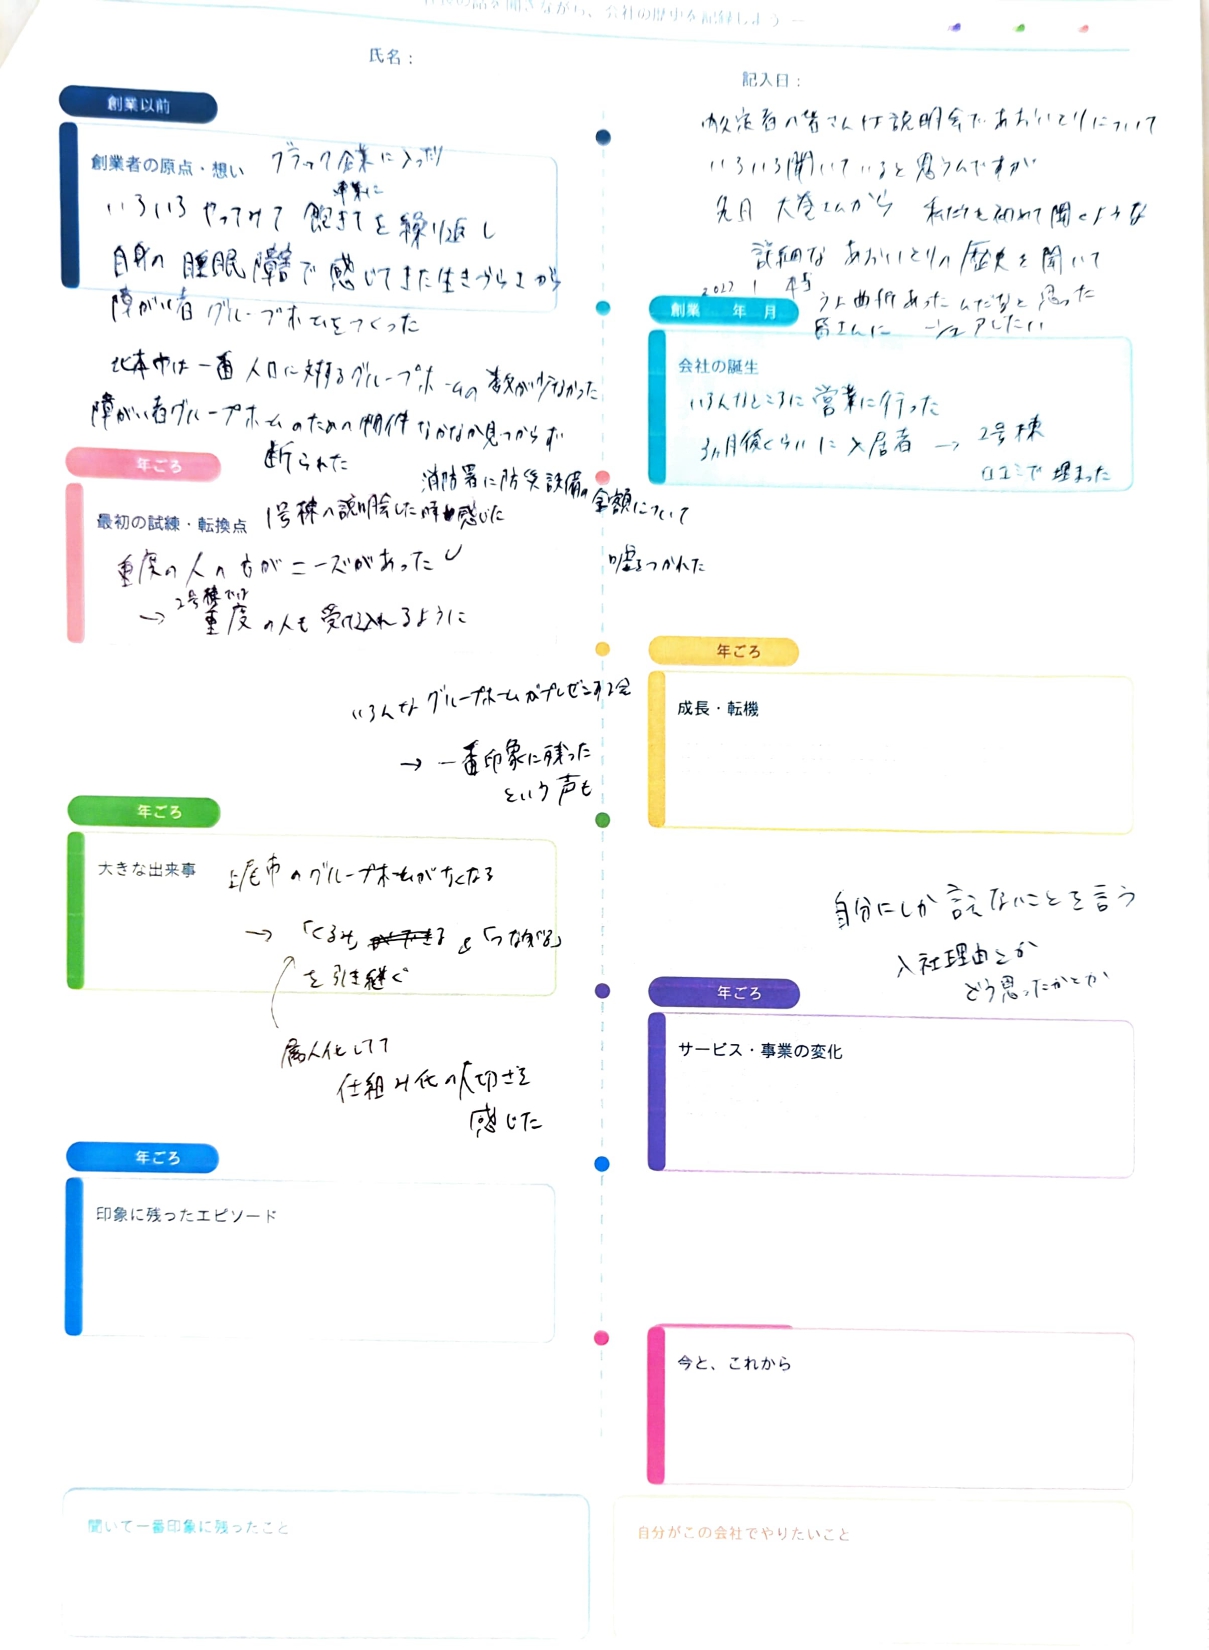 社長の話を聞きながら、会社の歴史を記録しよう ー
氏名：
記入日：
内定者の皆さんは説明会であおいとりについて
いろいろ聞いていると思うんですが
先日 大巻さんから 私たちも初めて聞くような
詳細な あおいとりの歴史を聞いて
うよ曲折あったんだなと思った
皆さんに シェアしたい
創業以前
創業者の原点・想い ブラック企業に入ったり
事業に
いろいろ やってみて 飽きてを繰り返し
自身の 睡眠障害で 感じてきた生きづらさから
障がい者 グループホームをつくった
北本市は一番 人口に対するグループホームの 数が少なかった
障がい者グループホームのための物件 なかなか見つからず
断られた
創業 年 月
会社の誕生
いろんなところに営業に行った
3ヵ月後くらいに入居者 → 2号棟
口コミで 埋まった
消防署に防災設備の金額について
嘘をつかれた
年ごろ
最初の試練・転換点 1号棟の説明会した時感じた
重度の人の方がニーズがあった
2号棟では
→ 重度の人も 受け入れるように
いろんな グループホームがプレゼンする会
→ 一番印象に残った
という声も
年ごろ
成長・転機
年ごろ
大きな出来事 上尾市のグループホームがなくなる
→ 「くるみ」 と「つなぐ」
を引き継ぐ
属人化してて
仕組み化の大切さを
感じた
自分にしか言えないことを言う
入社理由とか
どう思ったかとか
年ごろ
サービス・事業の変化
年ごろ
印象に残ったエピソード
今と、これから
聞いて一番印象に残ったこと
自分がこの会社でやりたいこと